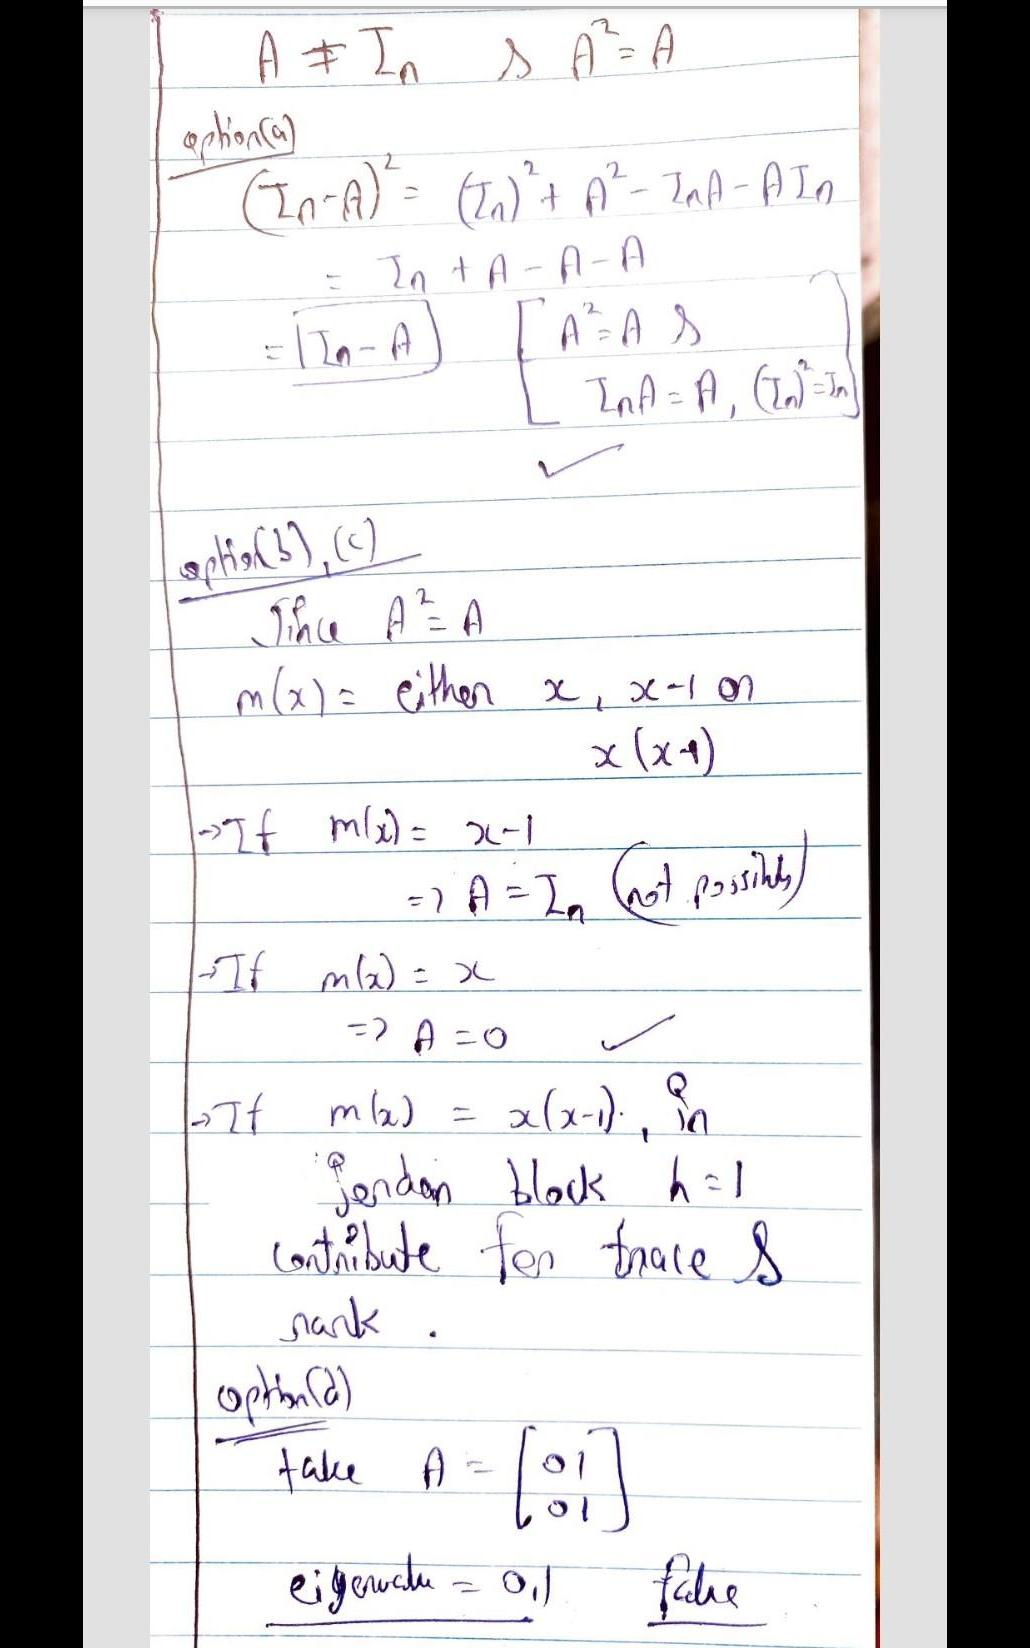 A ≠ Iₙ & A² = A
option(a)
(Iₙ-A)² = (Iₙ)² + A² - IₙA - AIₙ
= Iₙ + A - A - A
= Iₙ - A [A² = A &
IₙA = A, (Iₙ)² = Iₙ]
✓
option(b), (c)
Since A² = A
m(x) = either x, x-1 or
x(x-1)
→ If m(x) = x-1
⇒ A = Iₙ (not possible)
→ If m(x) = x
⇒ A = 0 ✓
→ If m(x) = x(x-1), in
jordan block h=1
contribute for trace &
rank .
option(d)
take A = [0 1
0 1]
eigenvalue = 0,1 false